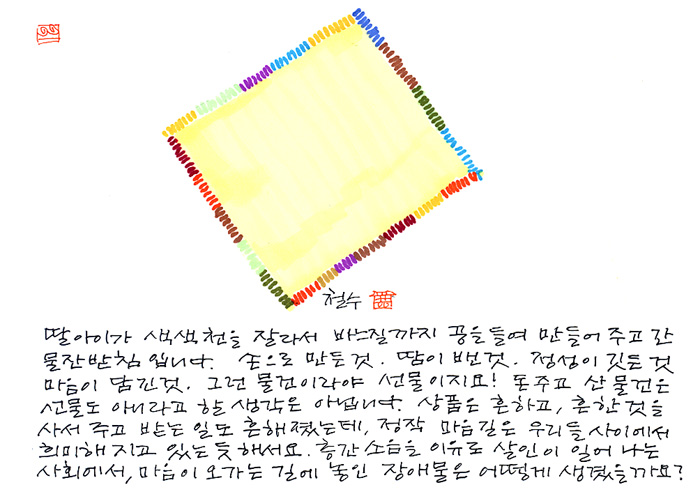 철수
딸아이가 색색천을 잘라서 바느질까지 공을 들여 만들어 주고 간
물잔받침 입니다. 손으로 만든 것. 땀이 밴 것. 정성이 깃든 것
마음이 담긴 것. 그런 물건이라야 선물이지요! 돈주고 산 물건은
선물도 아니라고 할 생각은 아닙니다. 상품은 흔하고, 흔한 것을
사서 주고 받는 일도 흔해졌는데, 정작 마음길은 우리들 사이에서
희미해 지고 있는 듯 해서요. 층간 소음을 이유로 살인이 일어 나는
사회에서, 마음이 오가는 길에 놓인 장애물은 어떻게 생겼을까요?